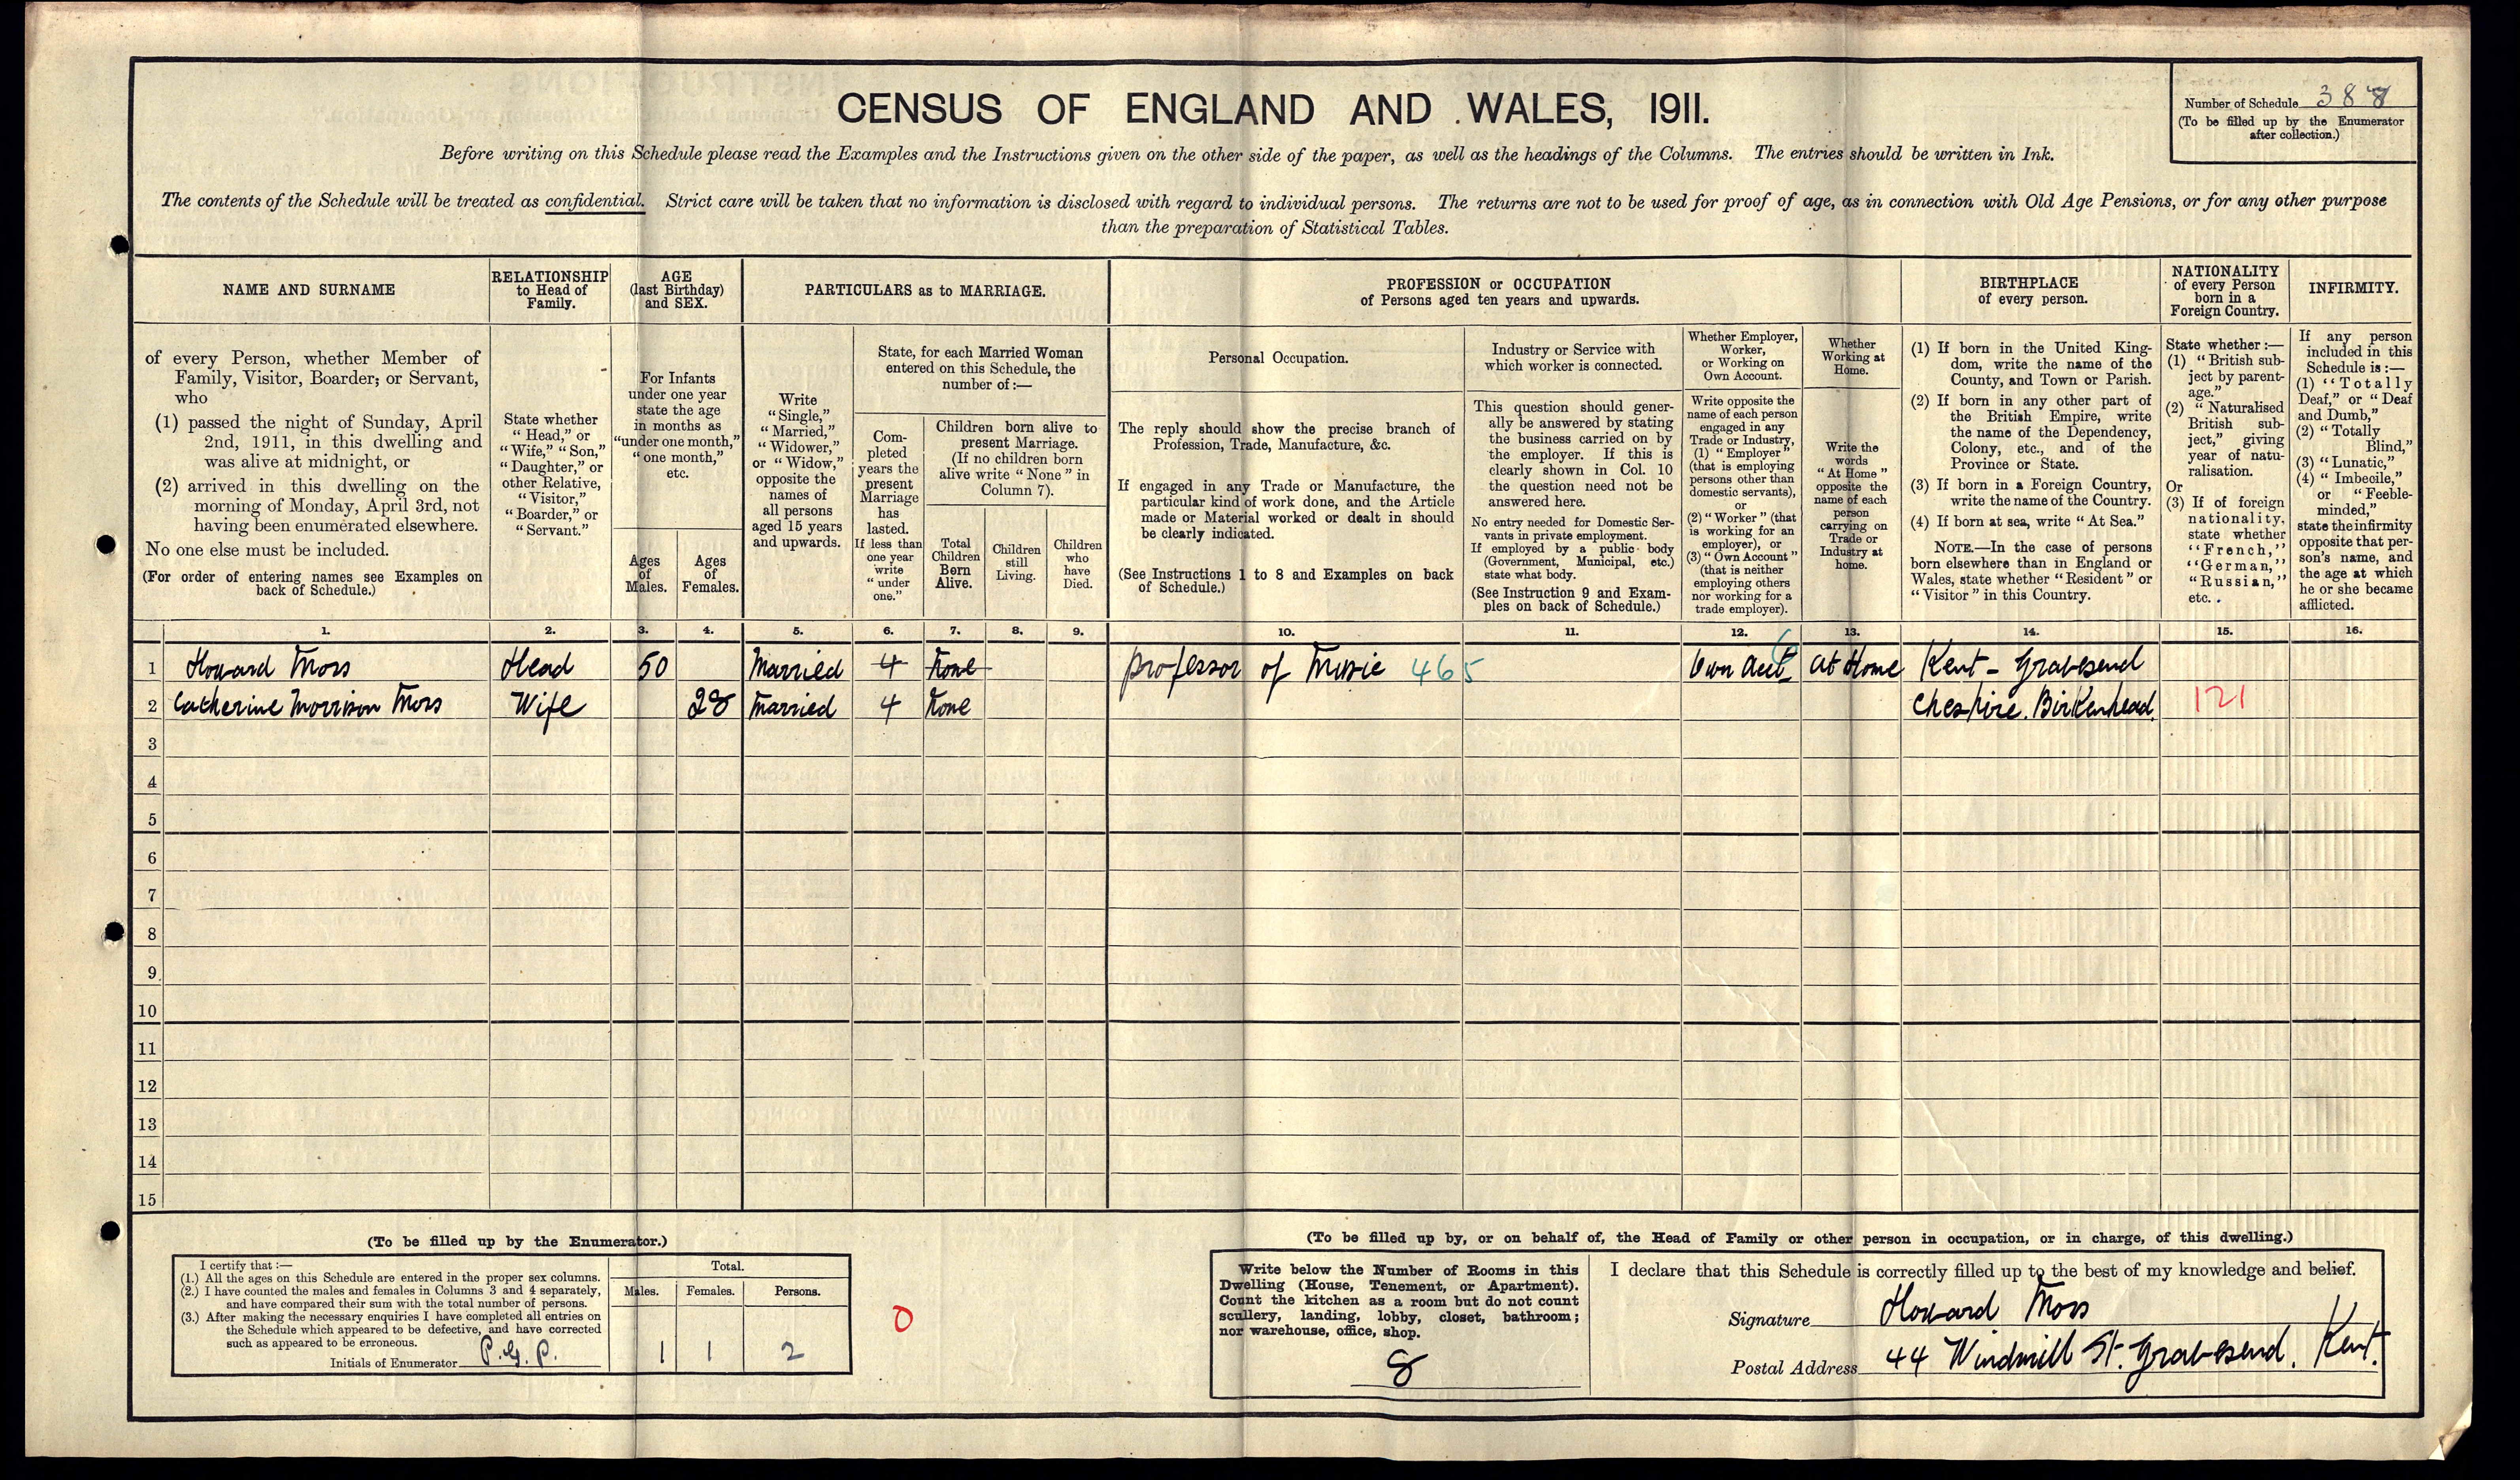 CENSUS OF ENGLAND AND WALES, 1911.
Number of Schedule 388
(To be filled up by the Enumerator
after collection.)
Before writing on this Schedule please read the Examples and the Instructions given on the other side of the paper, as well as the headings of the Columns. The entries should be written in Ink.
The contents of the Schedule will be treated as confidential. Strict care will be taken that no information is disclosed with regard to individual persons. The returns are not to be used for proof of age, as in connection with Old Age Pensions, or for any other purpose
than the preparation of Statistical Tables.
NAME AND SURNAME
of every Person, whether Member of
Family, Visitor, Boarder, or Servant,
who
(1) passed the night of Sunday, April
2nd, 1911, in this dwelling and
was alive at midnight, or
(2) arrived in this dwelling on the
morning of Monday, April 3rd, not
having been enumerated elsewhere.
No one else must be included.
(For order of entering names see Examples on
back of Schedule.)
RELATIONSHIP
to Head of
Family.
State whether
"Head," or
"Wife," "Son,"
"Daughter," or
other Relative,
"Visitor,"
"Boarder," or
"Servant."
AGE
(last Birthday)
and SEX.
For Infants
under one year
state the age
in months as
"under one month,"
"one month,"
etc.
Ages
of
Males.
Ages
of
Females.
PARTICULARS as to MARRIAGE.
Write
"Single,"
"Married,"
"Widower,"
or "Widow,"
opposite the
names of
all persons
aged 15 years
and upwards.
State, for each Married Woman
entered on this Schedule, the
number of:—
Com-
pleted
years the
present
Marriage
has
lasted.
If less than
one year
write
"under
one."
Children born alive to
present Marriage.
(If no children born
alive write "None" in
Column 7).
Total
Children
Born
Alive.
Children
still
Living.
Children
who
have
Died.
PROFESSION or OCCUPATION
of Persons aged ten years and upwards.
Personal Occupation.
The reply should show the precise branch of
Profession, Trade, Manufacture, &c.
If engaged in any Trade or Manufacture, the
particular kind of work done, and the Article
made or Material worked or dealt in should
be clearly indicated.
(See Instructions 1 to 8 and Examples on back
of Schedule.)
Industry or Service with
which worker is connected.
This question should gener-
ally be answered by stating
the business carried on by
the employer. If this is
clearly shown in Col. 10
the question need not be
answered here.
No entry needed for Domestic Ser-
vants in private employment.
If employed by a public body
(Government, Municipal, etc.)
state what body.
(See Instruction 9 and Exam-
ples on back of Schedule.)
Whether Employer,
Worker,
or Working on
Own Account.
Write opposite the
name of each person
engaged in any
Trade or Industry,
(1) "Employer"
(that is employing
persons other than
domestic servants),
or
(2) "Worker" (that
is working for an
employer), or
(3) "Own Account"
(that is neither
employing others
nor working for a
trade employer).
Whether
Working at
Home.
Write the
words
"At Home"
opposite the
name of each
person
carrying on
Trade or
Industry at
home.
BIRTHPLACE
of every person.
(1) If born in the United King-
dom, write the name of the
County, and Town or Parish.
(2) If born in any other part of
the British Empire, write
the name of the Dependency,
Colony, etc., and of the
Province or State.
(3) If born in a Foreign Country,
write the name of the Country.
(4) If born at sea, write "At Sea."
NOTE.—In the case of persons
born elsewhere than in England or
Wales, state whether "Resident" or
"Visitor" in this Country.
NATIONALITY
of every Person
born in a
Foreign Country.
State whether :—
(1) "British sub-
ject by parent-
age."
(2) "Naturalised
British sub-
ject," giving
year of natu-
ralisation.
Or
(3) If of foreign
nationality,
state whether
"French,"
"German,"
"Russian,"
etc.
INFIRMITY.
If any person
included in this
Schedule is :—
(1) "Totally
Deaf," or "Deaf
and Dumb,"
(2) "Totally
Blind,"
(3) "Lunatic,"
(4) "Imbecile,"
or "Feeble-
minded,"
state the infirmity
opposite that per-
son's name, and
the age at which
he or she became
afflicted.
1. 2. 3. 4. 5. 6. 7. 8. 9. 10. 11. 12. 13. 14. 15. 16.
1 Howard Moss Head 50 Married 4 None Professor of Music 465 Own Acct 6 At Home Kent - Gravesend
2 Catherine Morrison Moss Wife 28 Married 4 None Cheshire. Birkenhead. 121
3
4
5
6
7
8
9
10
11
12
13
14
15
(To be filled up by the Enumerator.)
I certify that :—
(1.) All the ages on this Schedule are entered in the proper sex columns.
(2.) I have counted the males and females in Columns 3 and 4 separately,
and have compared their sum with the total number of persons.
(3.) After making the necessary enquiries I have completed all entries on
the Schedule which appeared to be defective, and have corrected
such as appeared to be erroneous.
Initials of Enumerator P.G.P.
Total.
Males. Females. Persons.
1 1 2
0
(To be filled up by, or on behalf of, the Head of Family or other person in occupation, or in charge, of this dwelling.)
Write below the Number of Rooms in this
Dwelling (House, Tenement, or Apartment).
Count the kitchen as a room but do not count
scullery, landing, lobby, closet, bathroom;
nor warehouse, office, shop.
8
I declare that this Schedule is correctly filled up to the best of my knowledge and belief.
Signature Howard Moss
Postal Address 44 Windmill St. Gravesend. Kent.